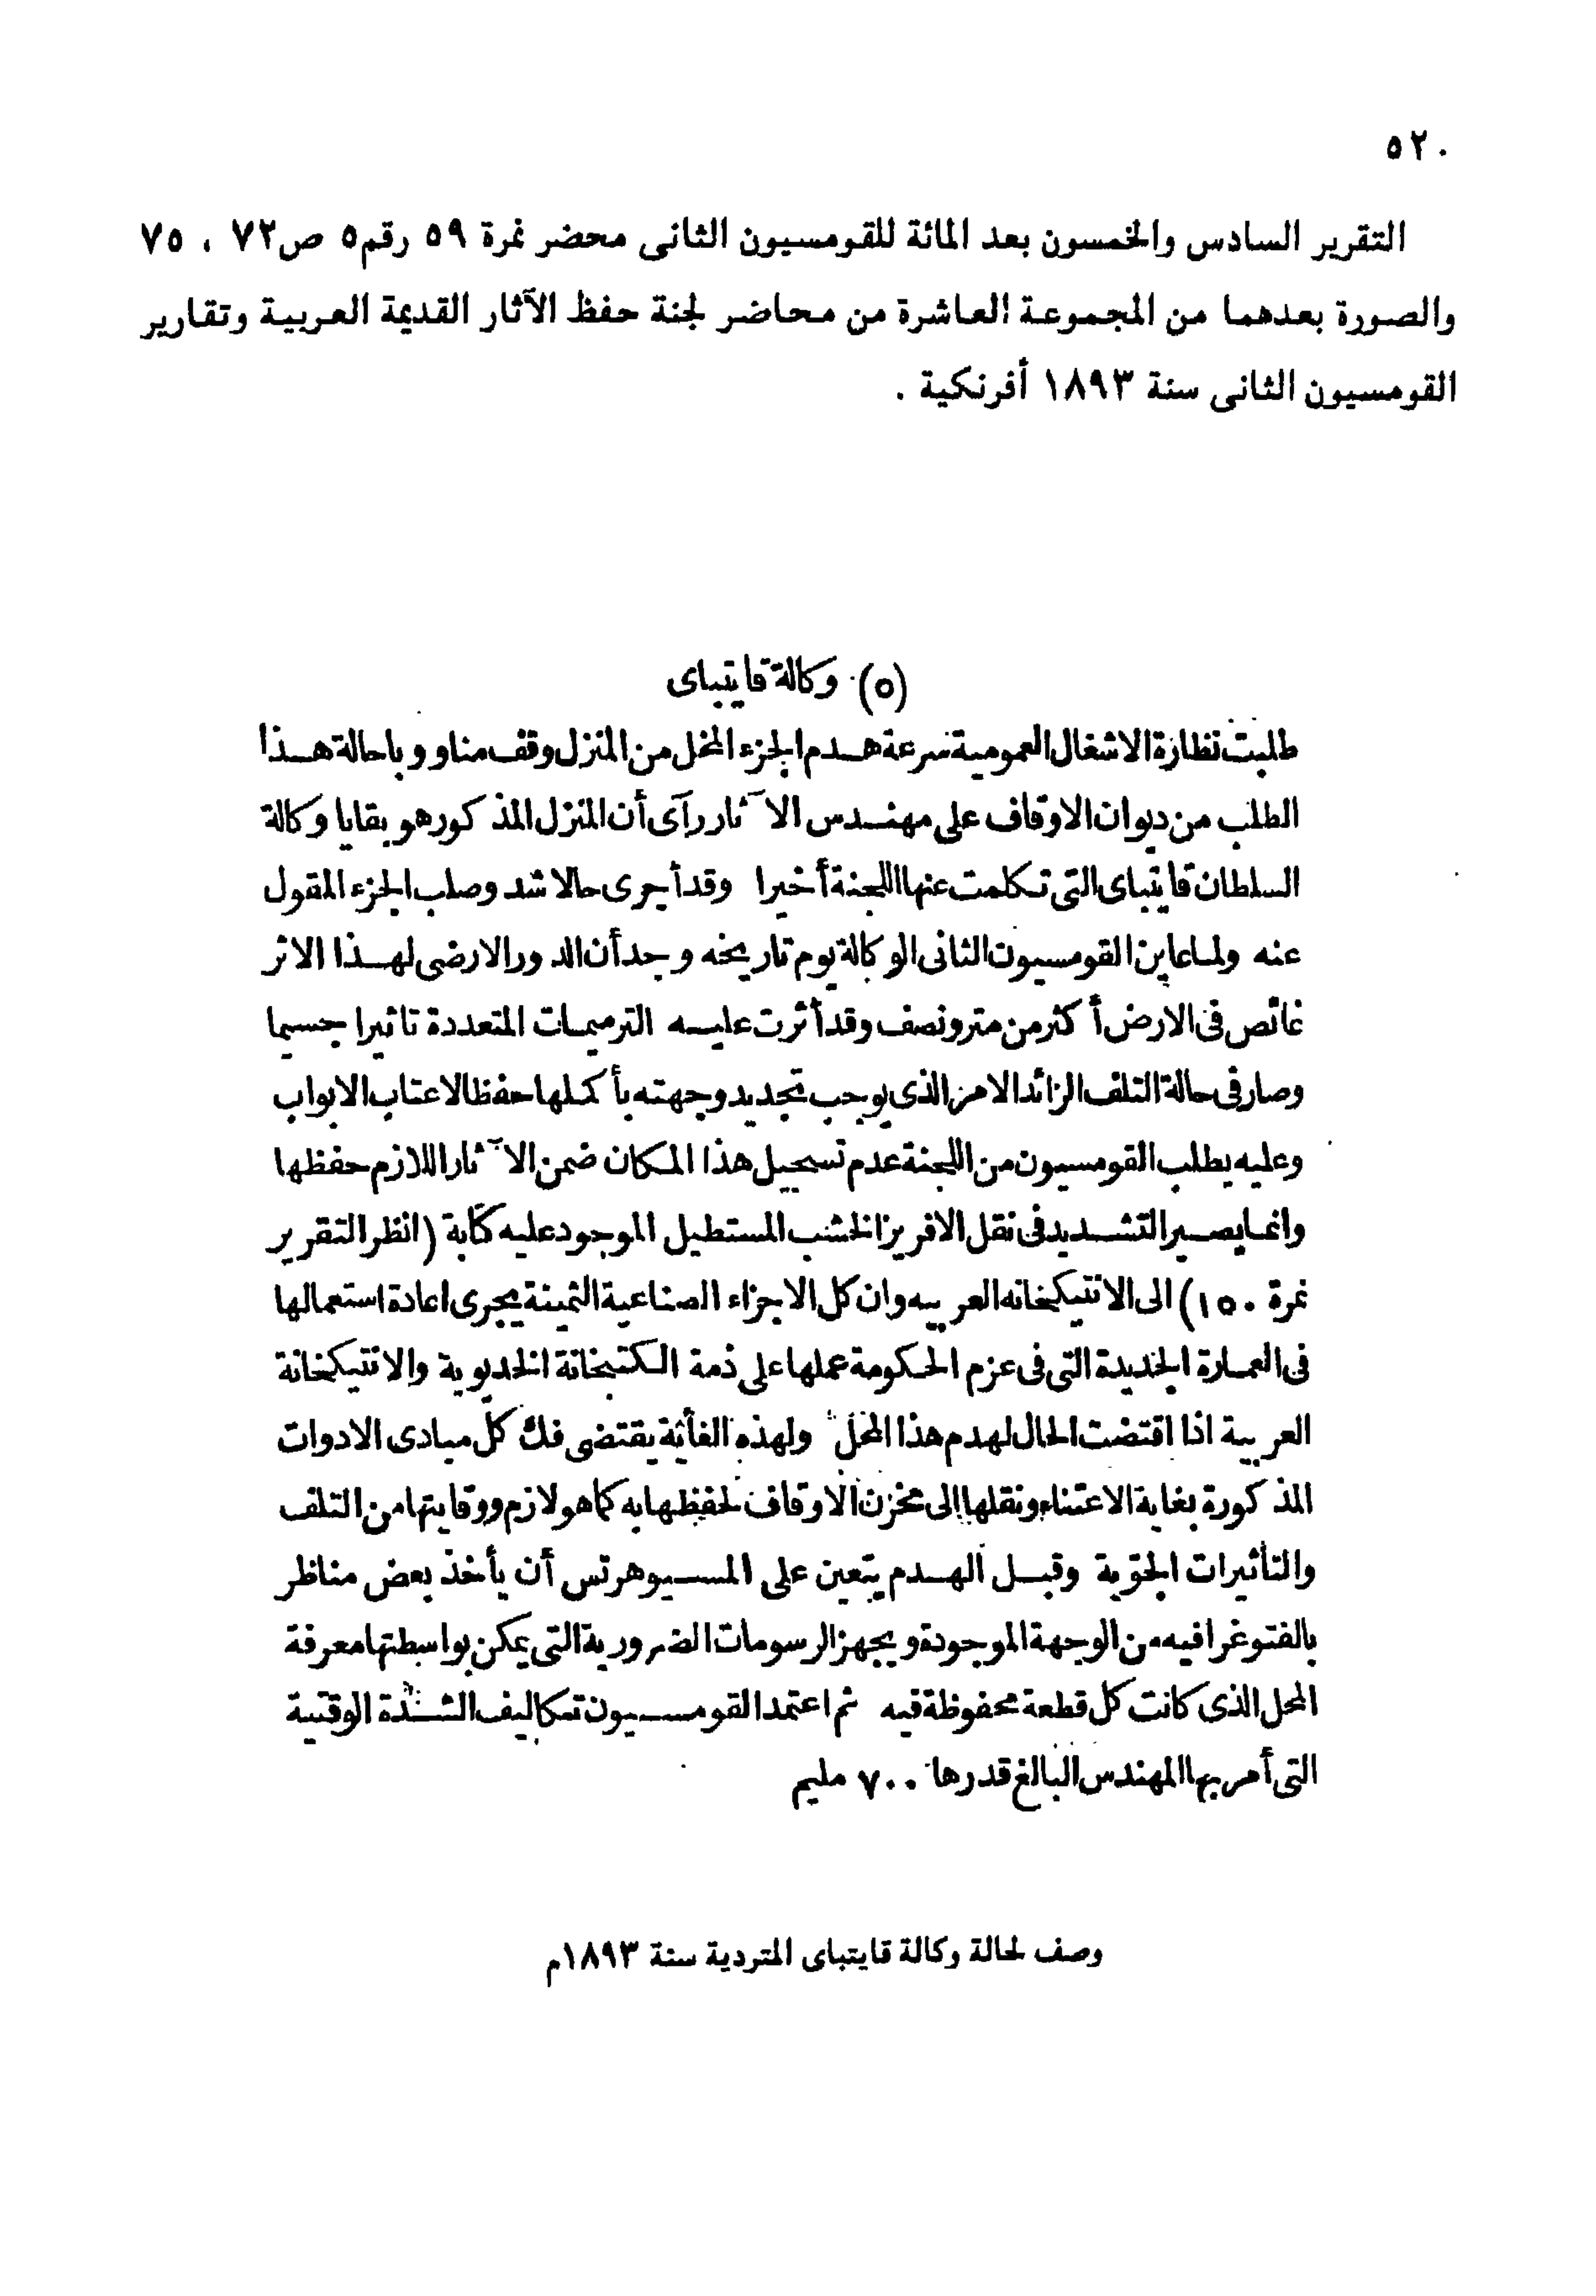 ٥٢٠
التقرير السادس والخمسون بعد المائة للقومسيون الثانى محضر نمرة ٥٩ رقم٥ ص٧٢ ، ٧٥
والصورة بعدهما من المجموعة العاشرة من محاضر لجنة حفظ الآثار القديمة العربية وتقارير
القومسيون الثانى سنة ١٨٩٣ أفرنكية .
(٥) وكالة قايتباى
طلبت نظارة الاشغال العمومية سرعة هدم الجزء المخل من المنزل وقف مناو وباحالة هذا
الطلب من ديوان الاوقاف على مهندس الآثار رآى أن المنزل المذكور هو بقايا وكالة
السلطان قايتباى التى تكلمت عنها اللجنة أخيرا وقد أجرى حالا شد وصلب الجزء المقول
عنه ولما عاين القومسيون الثانى الوكالة يوم تاريخه وجد أن الدور الارضى لهذا الاثر
غائص فى الارض أكثر من متر ونصف وقد أثرت عليه الترميمات المتعددة تاثيرا جسيما
وصار فى حالة التلف الزائد الامر الذى يوجب تجديد وجهته بأكملها حفظا لاعتاب الابواب
وعليه يطلب القومسيون من اللجنة عدم تسجيل هذا المكان ضمن الآثار اللازم حفظها
وانما يصير التشديد فى نقل الافريز الخشب المستطيل الموجود عليه كتابة (انظر التقرير
نمرة ١٥٠) الى الانتيكخانه العربيه وان كل الاجزاء الصناعية الثمينة يجرى اعادة استعمالها
فى العمارة الجديدة التى فى عزم الحكومة عملها على ذمة الكتبخانة الخديوية والانتيكخانة
العربية اذا اقتضت الحال لهدم هذا المحل ولهذه الغاية يقتضى فك كل مبادى الادوات
المذكورة بغاية الاعتناء ونقلها إلى مخزن الاوقاف لحفظها به كما هو لازم ووقايتها من التلف
والتأثيرات الجوّية وقبل الهدم يتعين على المسيو هرتس أن يأخذ بعض مناظر
بالفتوغرافيه من الوجهة الموجودة ويجهز الرسومات الضرورية التى يمكن بواسطتها معرفة
المحل الذى كانت كل قطعة محفوظة فيه ثم اعتمد القومسيون تكاليف الشدّة الوقتية
التى أمر بها المهندس البالغ قدرها ٧٠٠ مليم
وصف لحالة وكالة قايتباى المتردية سنة ١٨٩٣م